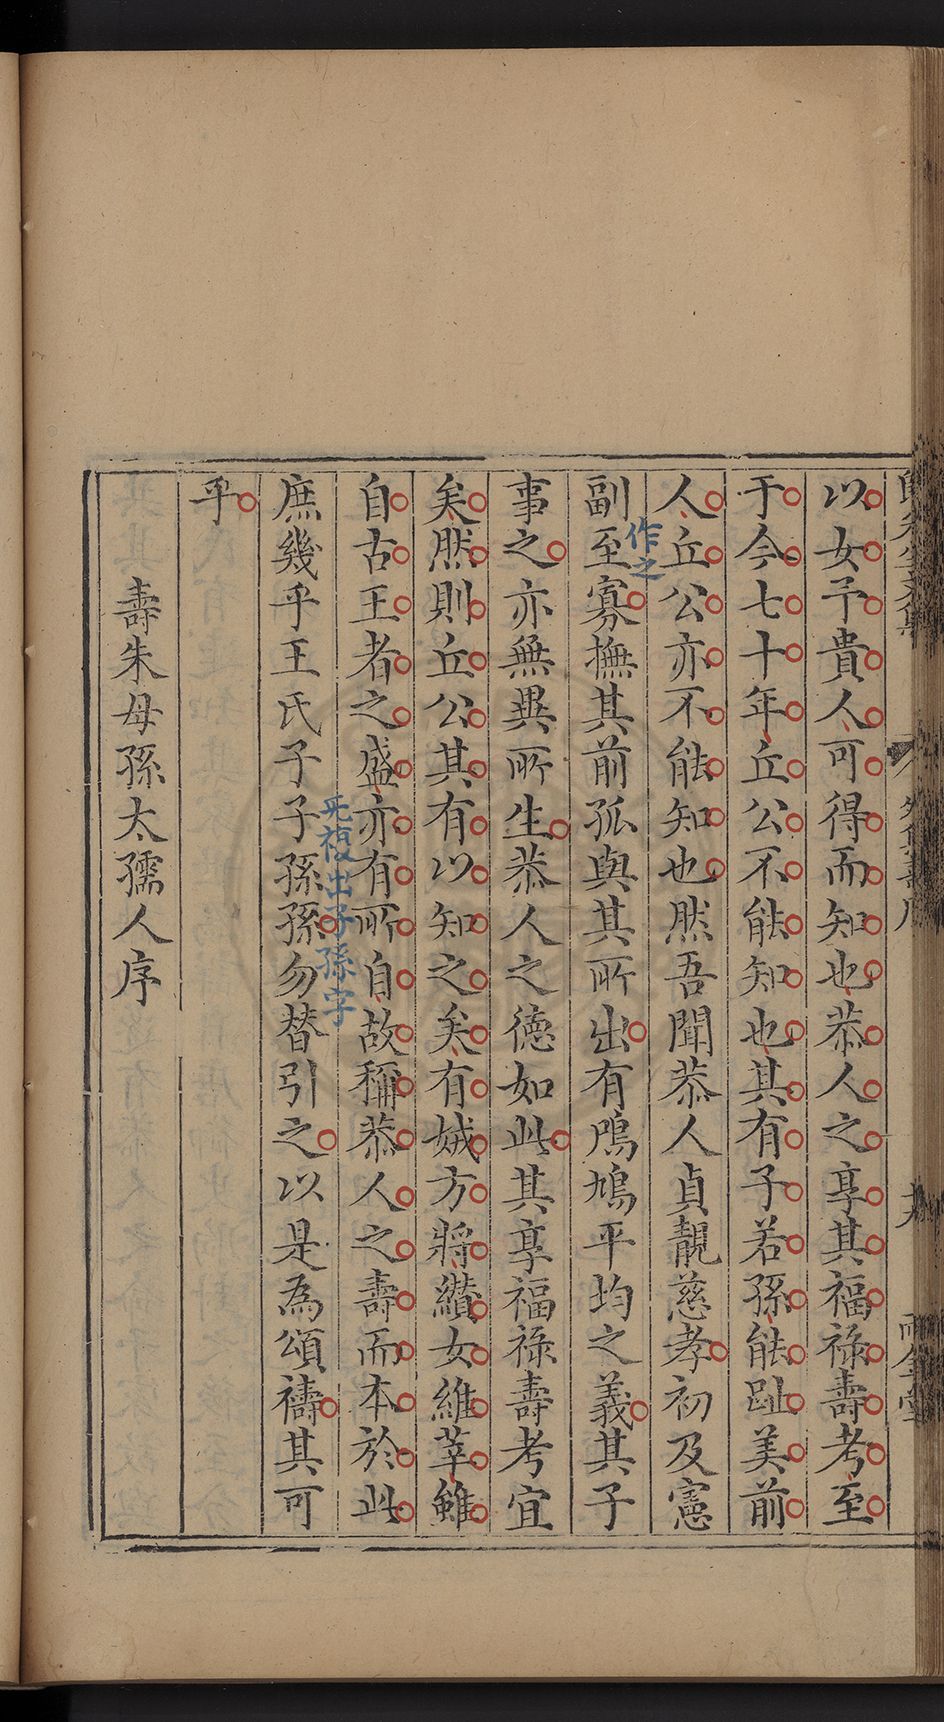 以女予貴人可得而知也恭人之享其福祿壽考至
于今七十年丘公不能知也其有子若孫能趾美前
人丘公亦不能知也然吾聞恭人貞靚慈孝初及憲
副至寡撫其前孤與其所出有鳲鳩平均之義其子
作之
事之亦無異所生恭人之德如此其享福祿壽考宜
矣然則丘公其有以知之矣有娀方將纘女維莘雖
自古王者之盛亦有所自故稱恭人之壽而本於此
庶幾乎王氏子子孫孫勿替引之以是為頌禱其可
旡複出子孫字
乎
壽朱母孫太孺人序